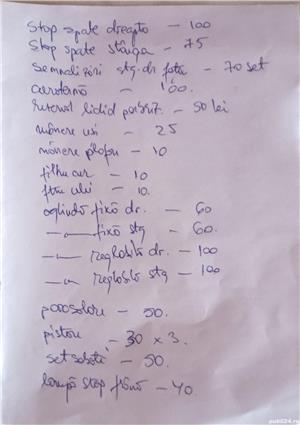 Stop spate dreapta — 100
Stop spate stânga — 75
Semnalizări stg. dr fata — 70 set
aerotermă — 100.
rezervor lichid parbriz. — 50 lei
mânere usi — 25
mânere plafon — 10
filtru aer — 10
filtru ulei — 10.
oglindă fixă dr. — 60
—„— fixă stg — 60.
—„— reglabilă dr. — 100
—„— reglabilă stg — 100
parasolare — 50.
pistoane — 30 x 3.
set saboti — 50.
lampă stop frână — 40.
publi24.ro